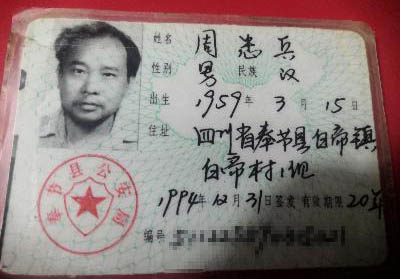 姓名 周志兵
性别 男 民族 汉
出生 1959年3月15日
住址 四川省奉节县白帝镇
白帝村1组
1994年12月31日签发 有效期限20年
编号
奉节县公安局